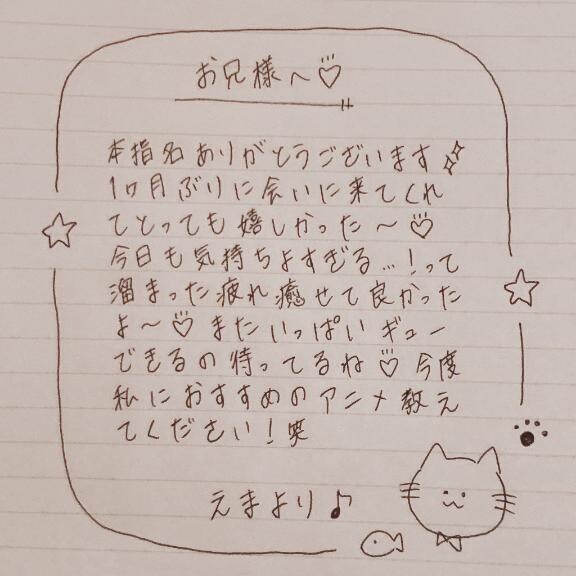 お兄様へ♡
本指名ありがとうございます✨
1ヶ月ぶりに会いに来てくれ
てとっても嬉しかった〜♡
今日も気持ちよすぎる...!って
溜まった疲れ癒せて良かった
よ〜♡またいっぱいギュー
できるの待ってるね♡今度
私におすすめのアニメ教え
てください!笑
えまより♪